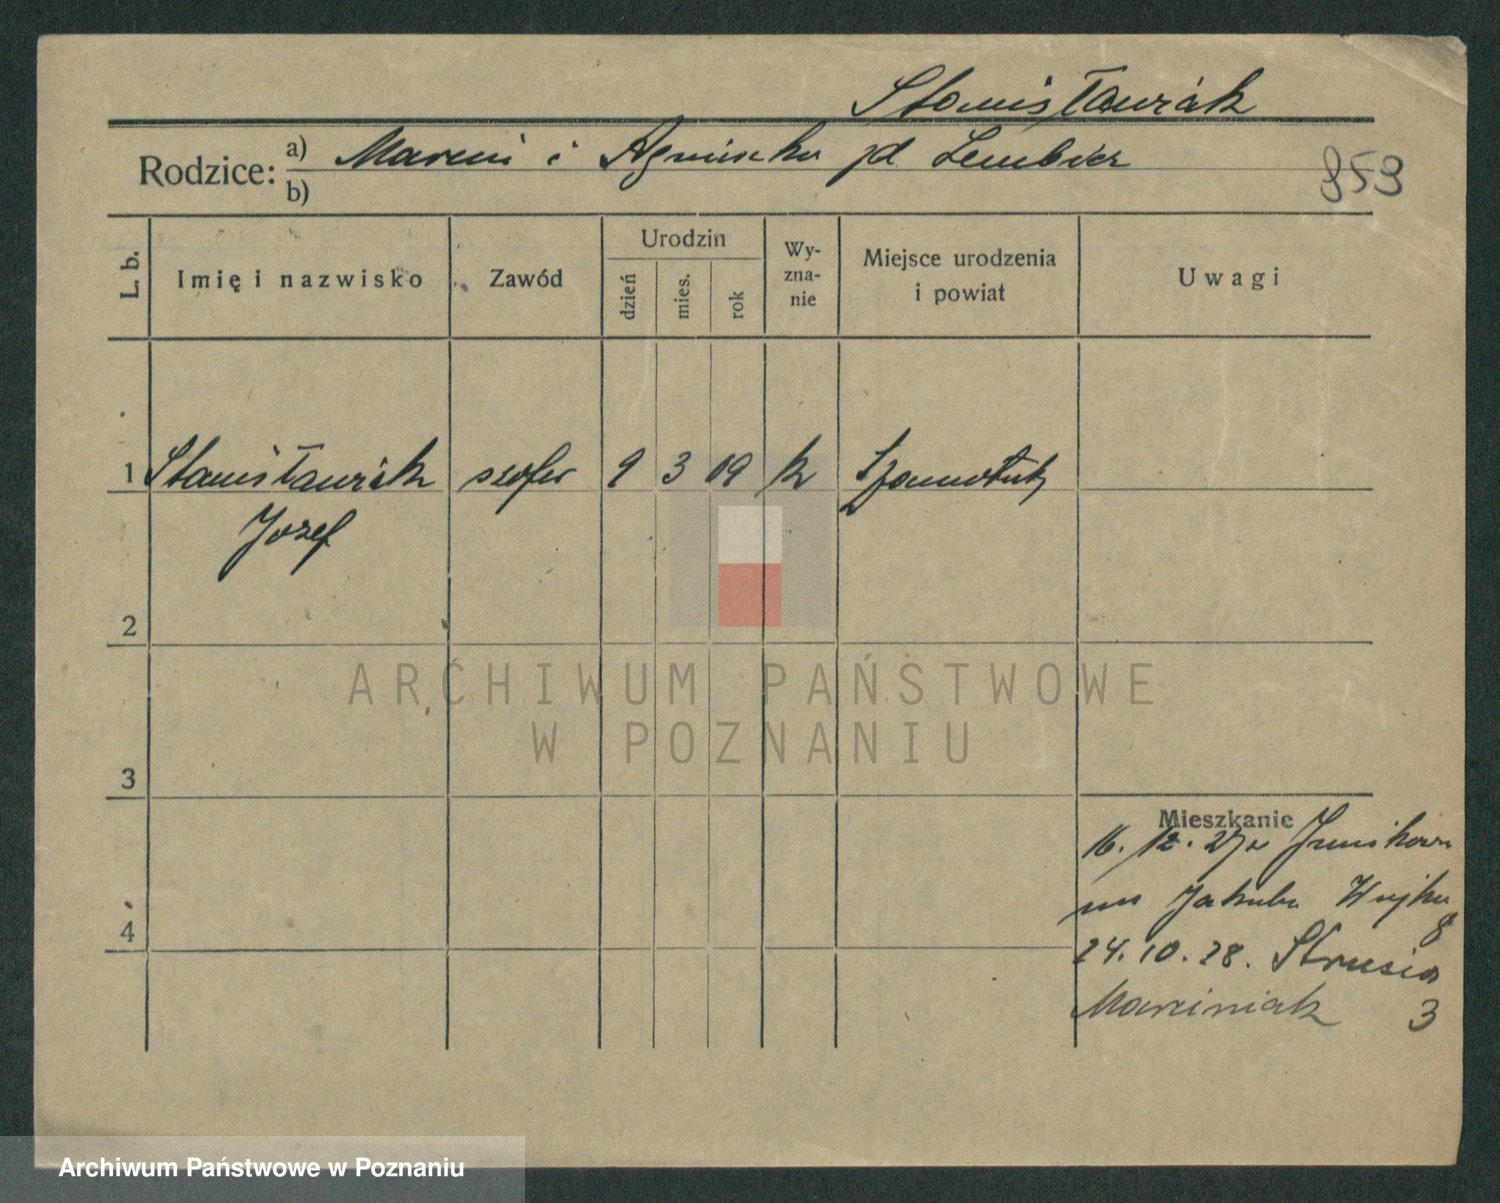 Stanisławiak
Rodzice: a) Marcin i Agnieszka zd
b)
853
L. b.
Imię i nazwisko
Zawód
Urodzin
dzień
mies.
rok
Wy-
zna-
nie
Miejsce urodzenia
i powiat
Uwagi
1 Stanisławiak szofer 9 3 09 k Szamotuły
Józef
2
ARCHIWUM PAŃSTWOWE
W POZNANIU
3
Mieszkanie
16. 12. 27
Jakuba Wujka
8
4
24. 10. 28. Strusia
Marciniak 3
Archiwum Państwowe w Poznaniu